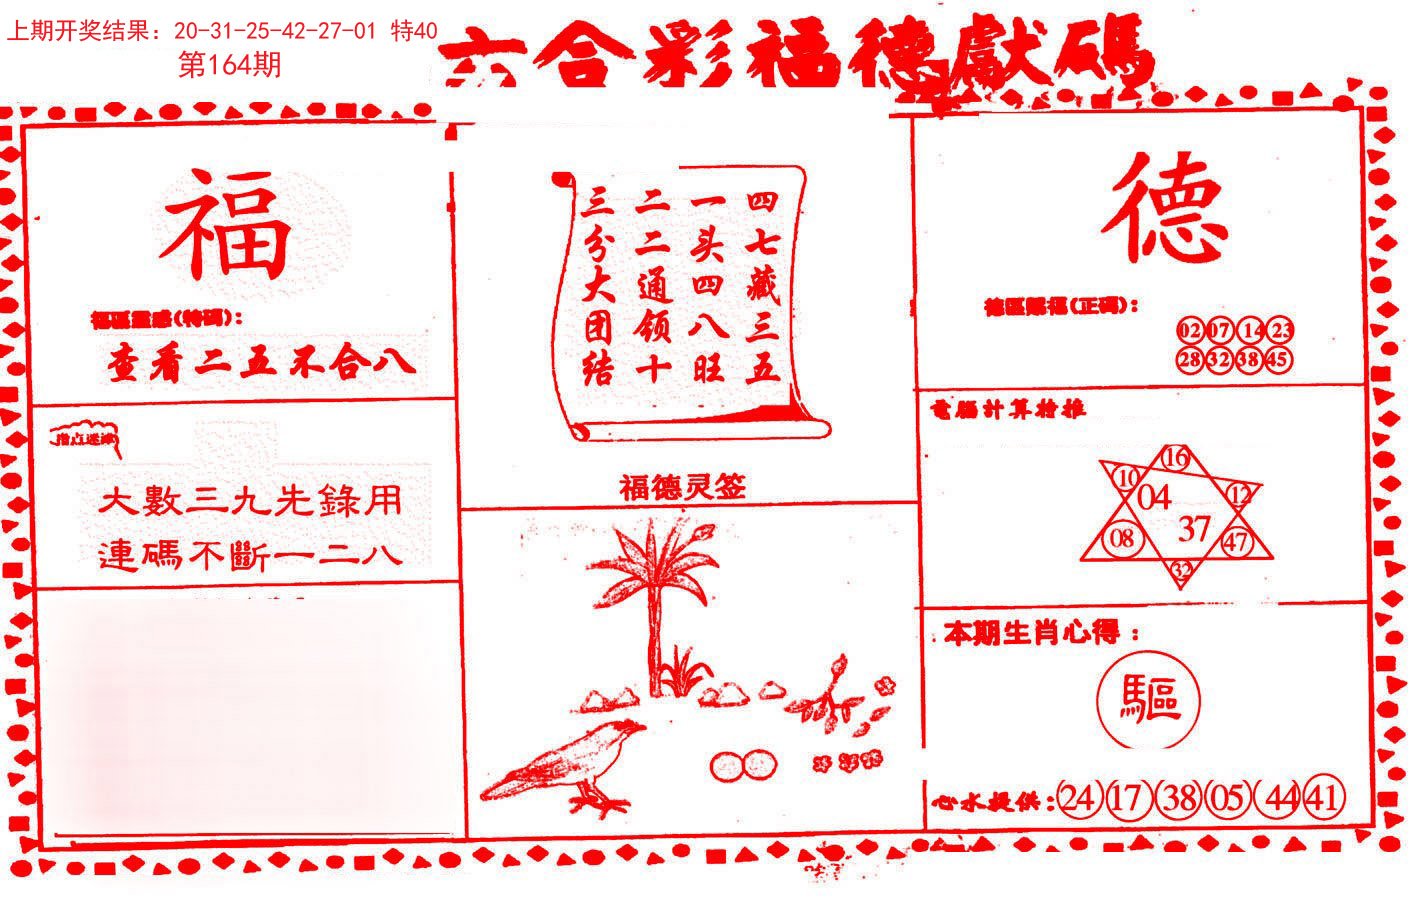 上期开奖结果：20-31-25-42-27-01 特40
第164期
六合彩福德獻碼
福
福區靈感(特碼):
查看二五不合八
指点迷津
大數三九先錄用
連碼不斷一二八
四七藏三五
一头四八旺
二二通领十
三分大团结
福德灵签
德
德區賜福(正碼):
02 07 14 23
28 32 38 45
電腦計算特推
16
10
04
12
37
08
47
32
本期生肖心得：
驅
心水提供:24 17 38 05 44 41